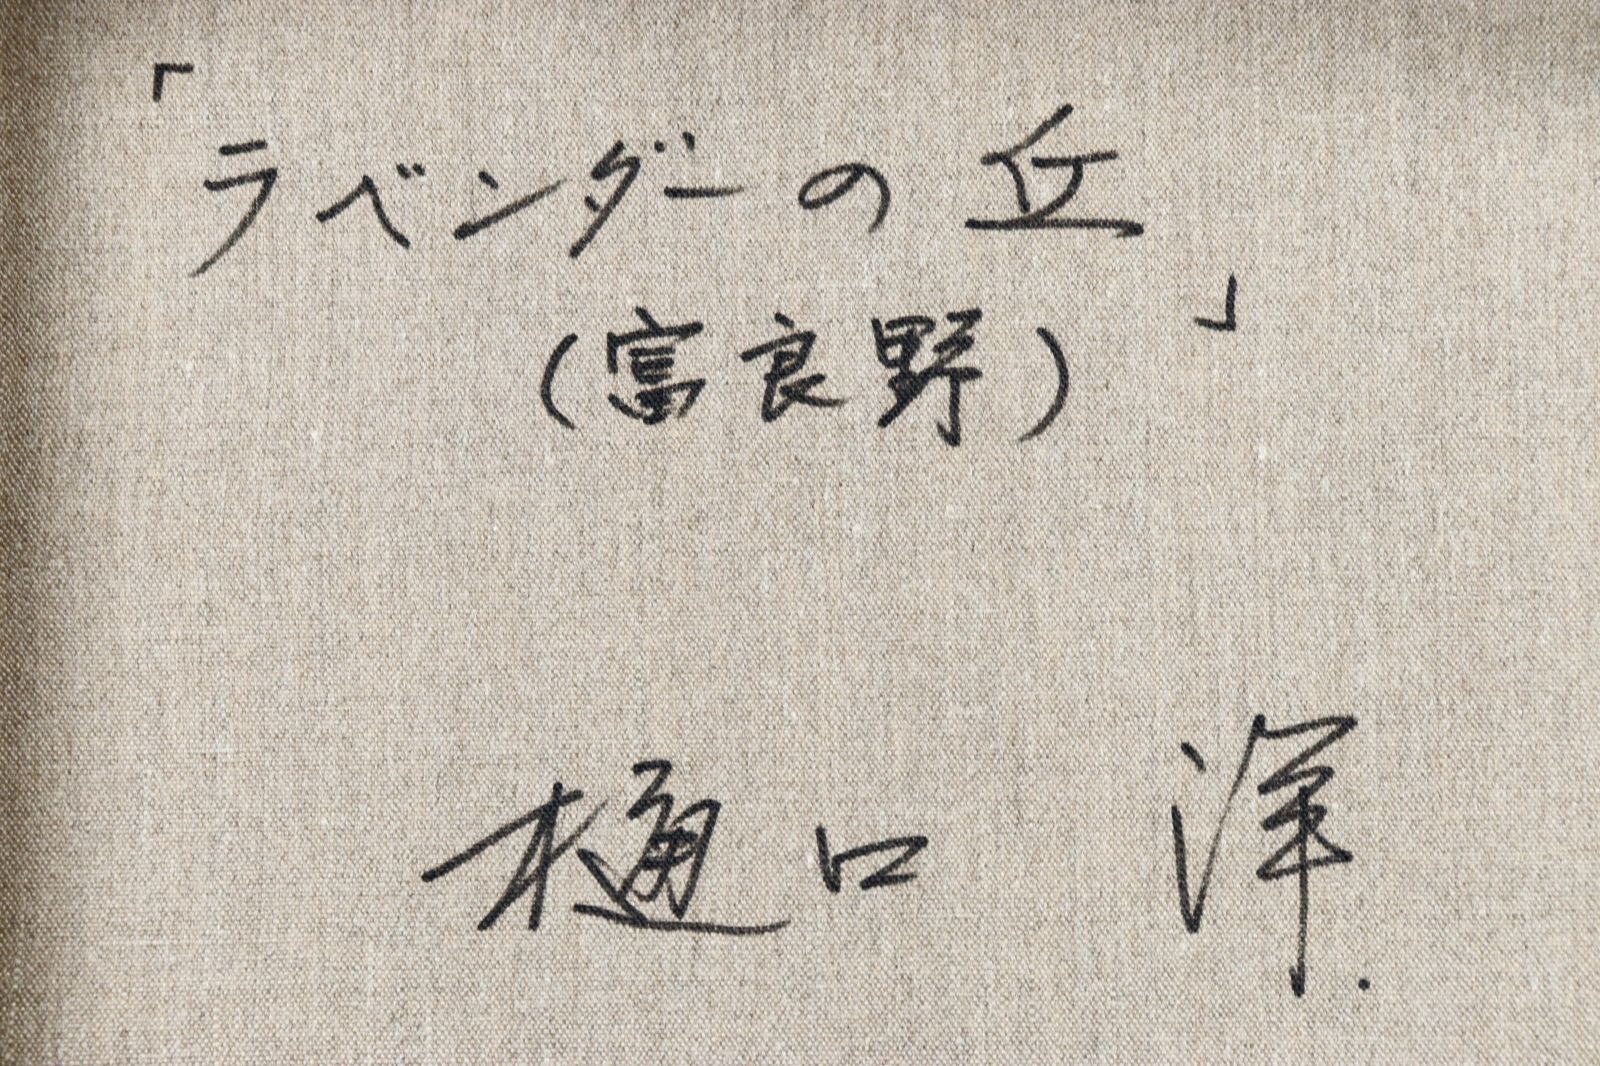 「ラベンダーの丘」
(富良野)
樋口 洋.